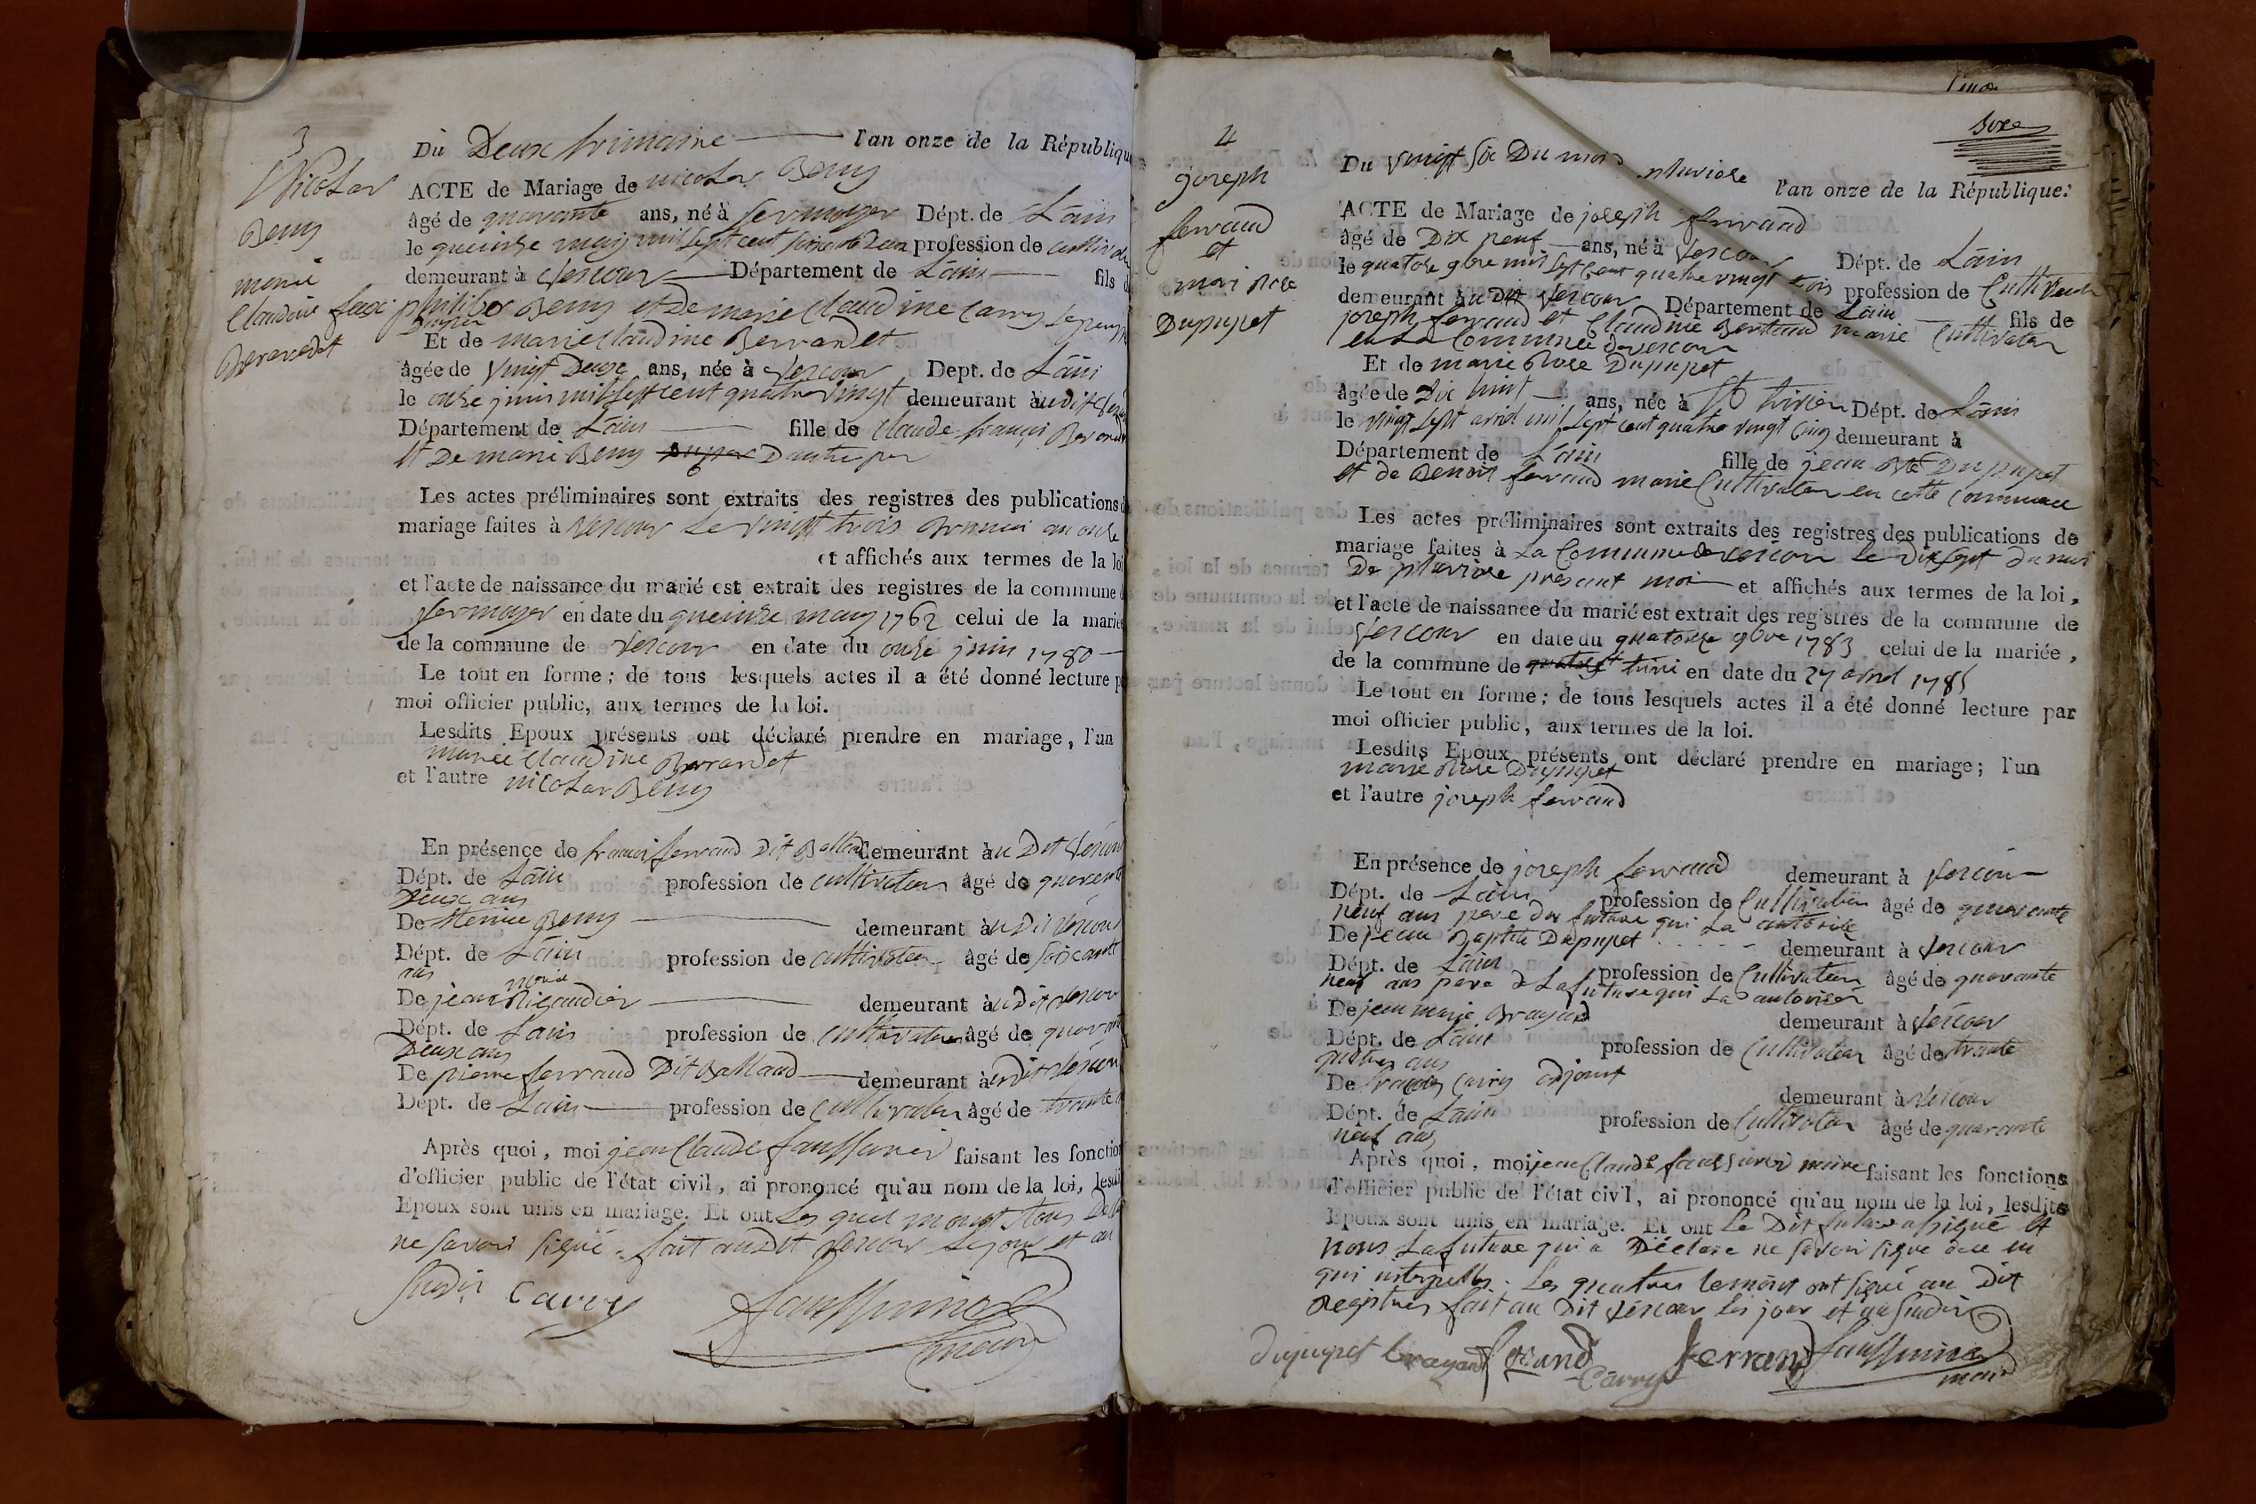 3
Nicolas
Beny
marié
Claudine
Berendet
Du Deux frimaire l'an onze de la République
ACTE de Mariage de nicolas Beny
âgé de quarante ans, né à Sermoyer Dépt. de Lain
le queinze may mil sept cent soixante Deux profession de cultivateur
demeurant à Vescour Département de Lain fils de
feux philiber Beny et De marie Claudine Carry
Et de marie Claudine Berrandet
âgée de Vingt Deux ans, née à Vescour Dept. de Lain
le onze juin mil sept cent quatre vingt demeurant àudit Vescour
Département de Lain fille de Claude françois Berendet
Et De marie Beny D'autre par
Les actes préliminaires sont extraits des registres des publications de
mariage faites à Vescour Le vingt trois Brumai an onze
et affichés aux termes de la loi
et l'acte de naissance du marié est extrait des registres de la commune de
Sermoyer en date du queinze may 1762 celui de la mariée
de la commune de Vescour en date du onze juin 1780
Le tout en forme ; de tous lesquels actes il a été donné lecture par
moi officier public, aux termes de la loi.
Lesdits Epoux présents ont déclaré prendre en mariage, l'un
marie Claudine Berrandet
et l'autre nicolas Beny
En présence de francoi ferrand Dit Balland demeurant àu Dit Vescour
Dépt. de Lain profession de cultivateur âgé de quarente
Deux ans
De Beny demeurant àu Dit Vescour
Dépt. de Lain profession de cultivateur âgé de soixante
ans
De jean marie Rigaudier demeurant àu Dit Vescour
Dépt. de Lain profession de cultivateur âgé de quarante
Deux ans
De pierre ferraud Dit Balland demeurant àudit Vescour
Dépt. de Lain profession de cultivateur âgé de trante
Après quoi, moi jean Claude faussurier faisant les fonctions
d'officier public de l'état civil, ai prononcé qu'au nom de la loi, lesdits
Epoux sont unis en mariage. Et ont Les quel mont tous
ne savoir signé. fait audit Vescour Le jour et an
susdit Carry faussurier
maire
4
joseph
ferraud
et
mari Rose
Dupupet
Du vingt six Du mois pluviose l'an onze de la République.
ACTE de Mariage de joseph ferraud
âgé de Dix neuf ans, né à Vescour Dépt. de Lain
le quatorze 9bre mil sept cent quatre vingt trois profession de Cultivateur
demeurant àu Dit Vescour Département de Lain fils de
joseph ferraud et Claudine Bertaud marié Cultivateur
en La Commune de vescour
Et de marie Rose Dupupet
âgée de Dix huit ans, née à St trivier Dépt. de Lain
le vingt sept avril mil sept cent quatre vingt cinq demeurant à
Département de Lain fille de jean Bte Dupupet
et de Benoit ferraud marié Cultivateur en cette commune
Les actes préliminaires sont extraits des registres des publications de
mariage faites à La Commune de vescour le Dix sept du moi
De pluviose présent moi et affichés aux termes de la loi,
et l'acte de naissance du marié est extrait des registres de la commune de
Vescour en date du quatorze 9bre 1783 celui de la mariée,
de la commune de St trivi en date du 27 avril 1785
Le tout en forme ; de tous lesquels actes il a été donné lecture par
moi officier public, aux termes de la loi.
Lesdits Epoux présents ont déclaré prendre en mariage; l'un
marie Rose Dupupet
et l'autre joseph ferraud
En présence de joseph ferraud demeurant à Vescour
Dépt. de Lain profession de Cultivateur âgé de quarante
neuf ans pere du future qui La autorisé
De jean Baptite Dupupet demeurant à Vescour
Dépt. de Lain profession de Cultivateur âgé de quarante
neuf ans pere de La future qui La autorisér
De jean marie Brayard demeurant à Vescour
Dépt. de Lain profession de Cultivateur âgé de trante
quatres ans
De Carry adjoint demeurant à Vescour
Dépt. de Lain profession de Cultivateur âgé de quarante
neuf ans
Après quoi, moi jean Claude faussurier maire faisant les fonctions
d'officier public de l'état civil, ai prononcé qu'au nom de la loi, lesdits
Epoux sont unis en mariage. Et ont Le Dit future a signé et
nons La future qui a Déclare ne savoir signe de ce
qui interpelles. Les quatres temoins ont signé au Dit
Registres fait au Dit Vescour Les jour et an susdit
dupupet brayard ferand Carry ferrand faussurier
maire